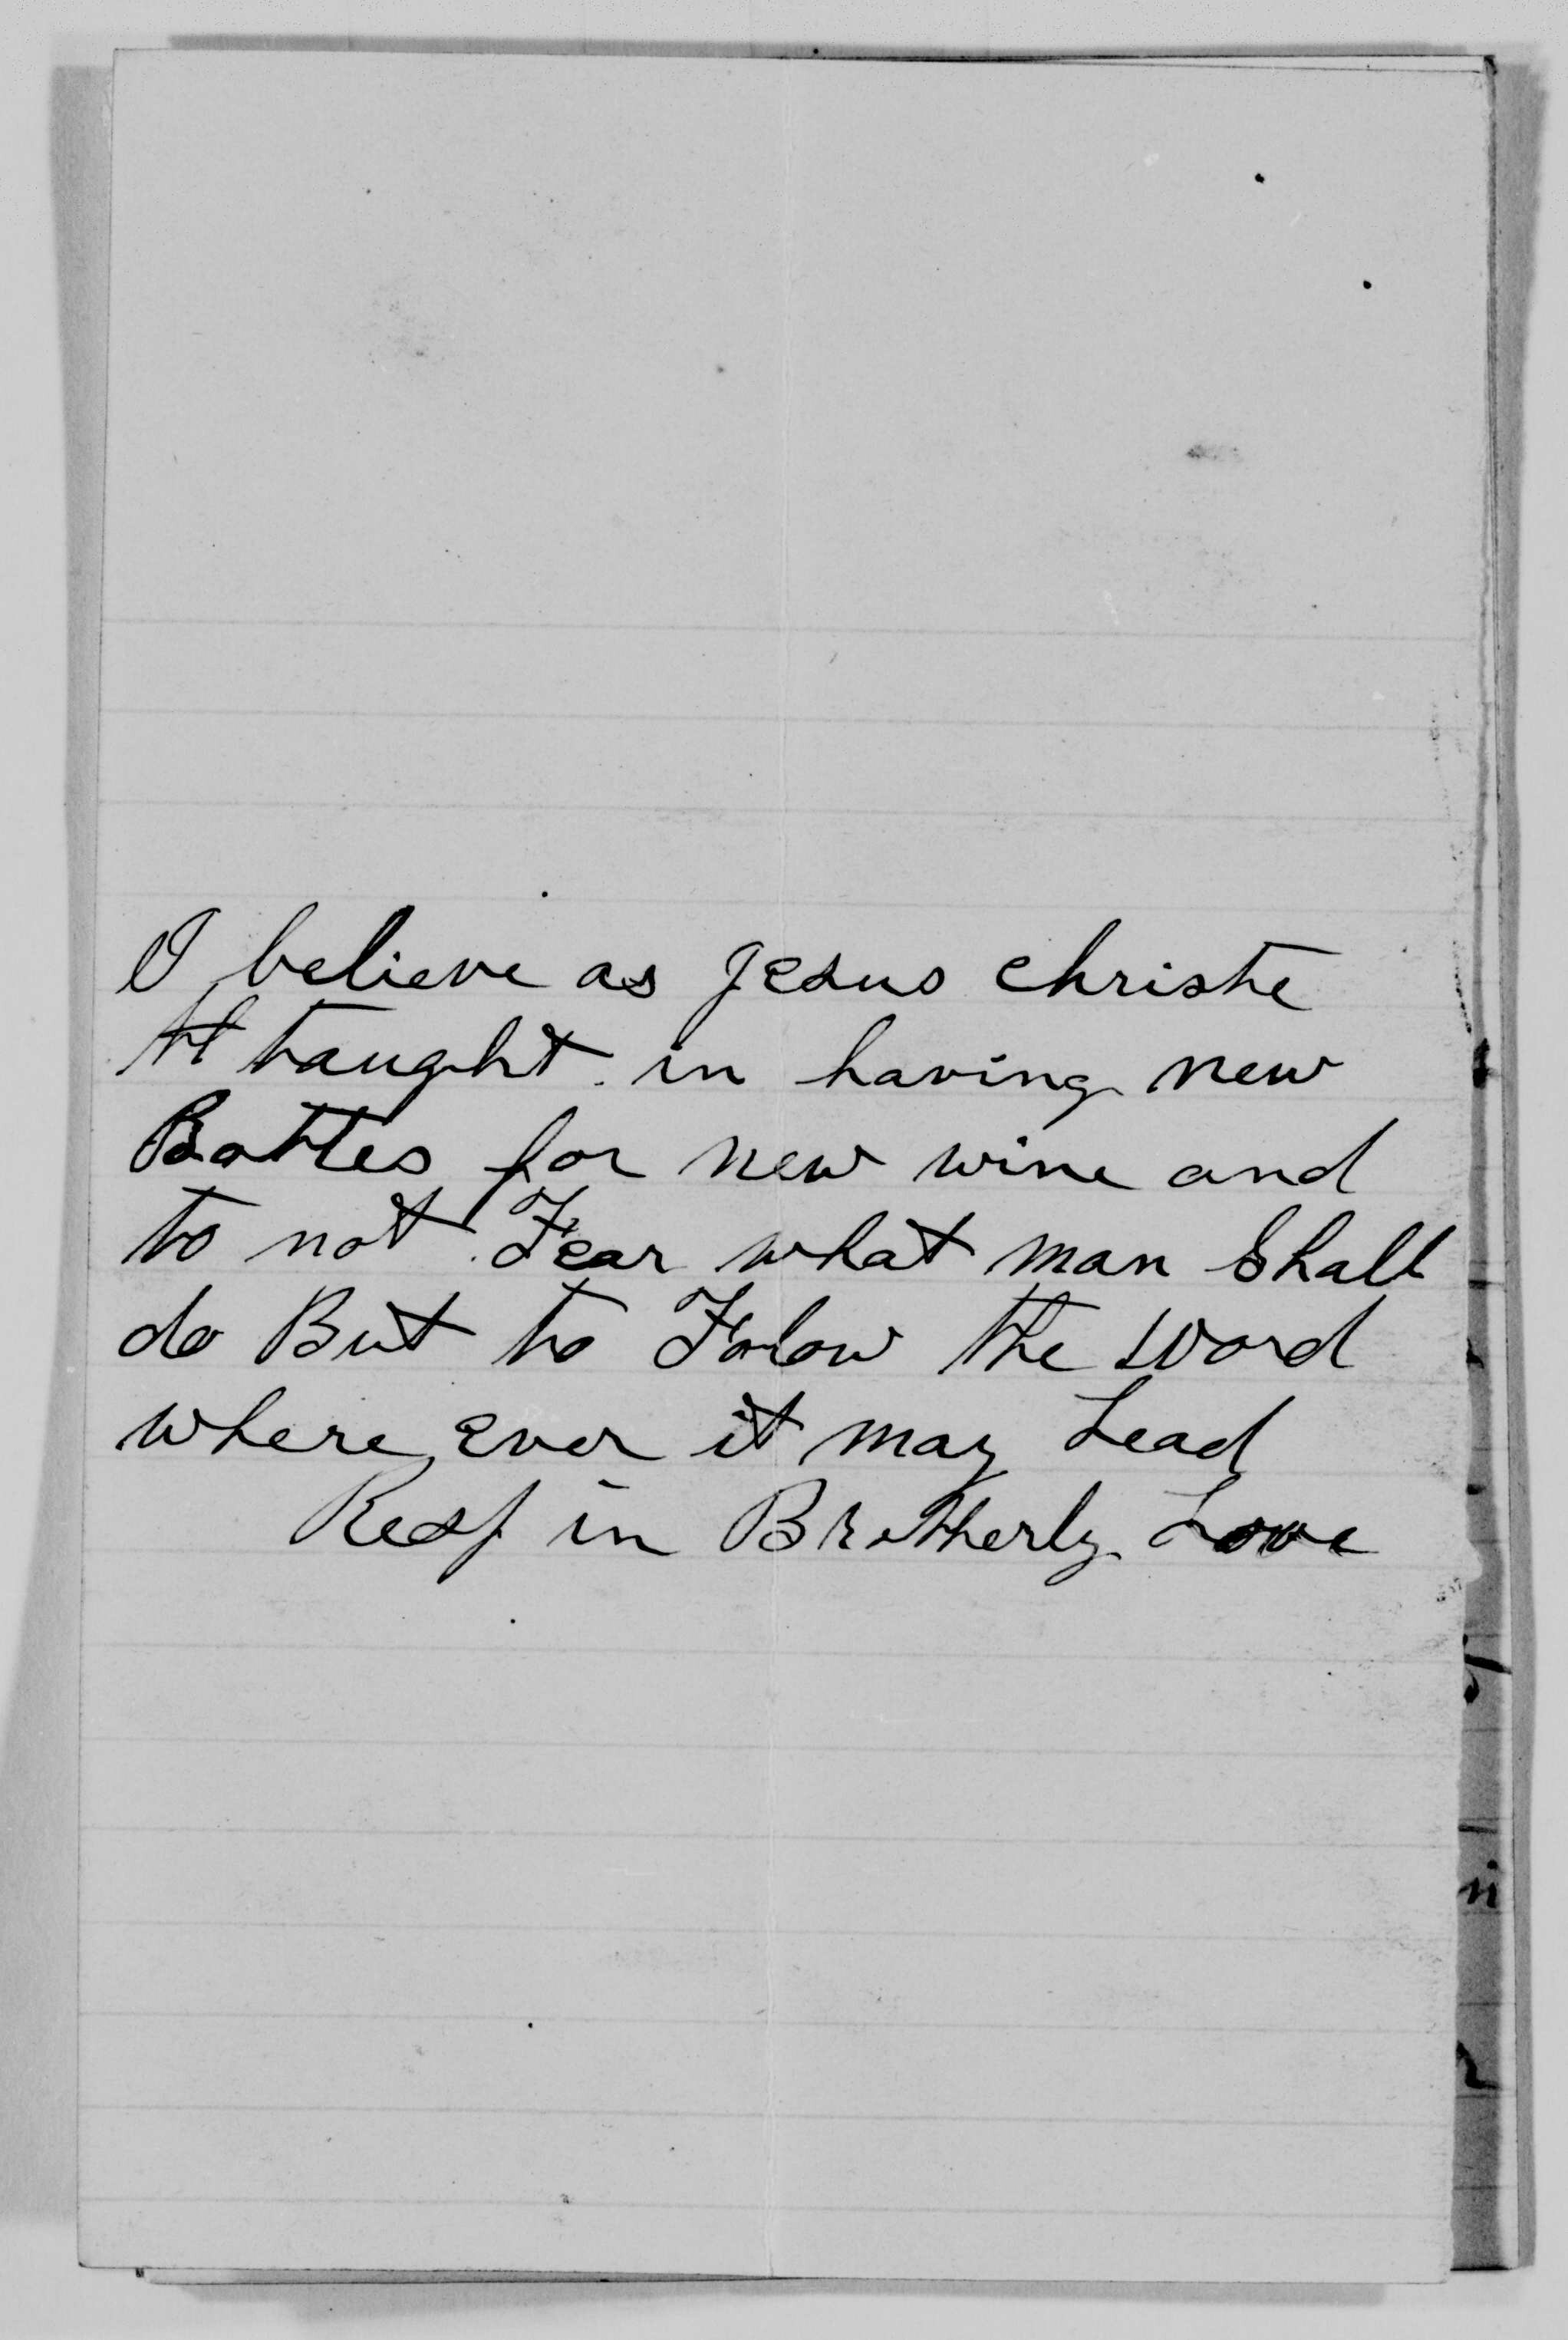 I believe as Jesus Christe
taught in having new
Bottles for new wine and
to not Fear what man Shall
do But to Folow the Word
where ever it may Lead
Resp in Brotherly Love